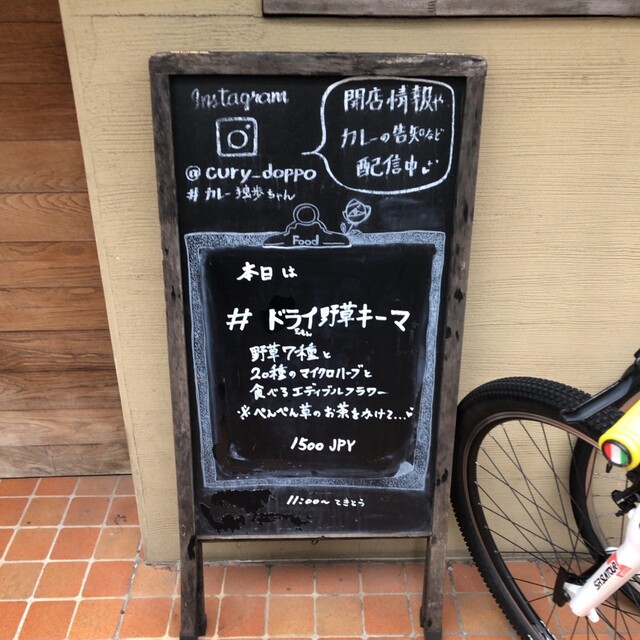 Instagram
@cury_doppo
# カレー独歩ちゃん
開店情報や
カレーの告知など
配信中
Food
本日は
# ドライ野草キーマ
野草7種と
20種のマイクロハーブと
食べるエディブルフラワー
※ぺんぺん草のお茶をかけて...
1500 JPY
11:00〜てきとう